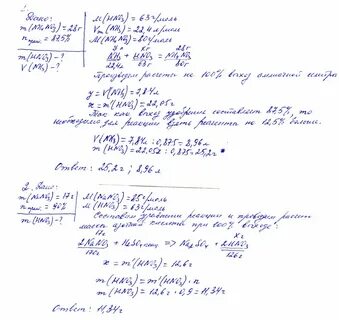 1.
Дано:
m(NH₄NO₃) = 28г
η прак. = 87,5%
m(HNO₃) - ?
V(NH₃) - ?
M(HNO₃) = 63 г/моль
Vm(NH₃) = 22,4 л/моль
M(NH₄NO₃) = 80 г/моль
y л x г 28г
NH₃ + HNO₃ = NH₄NO₃
22,4л 63г 80г
Произведем расчеты на 100% выход аммиачной селитры
y = V(NH₃) = 7,84л
x = m'(HNO₃) = 22,05г
Так как выход удобрения составляет 87,5%, то
необходимо для реакции взять реагентов на 12,5% больше.
V(NH₃) = 7,84л : 0,875 = 8,96л
m(HNO₃) = 22,05г : 0,875 = 25,2г
Ответ: 25,2г ; 8,96л
2. Дано:
m(NaNO₃) = 17г
η прак. = 90%
m(HNO₃) - ?
M(NaNO₃) = 85 г/моль
M(HNO₃) = 63 г/моль
Составим уравнение реакции и проведем расчет
массы азотной кислоты при 100% выходе:
17г x г
2NaNO₃ + H₂SO₄ => Na₂SO₄ + 2HNO₃
170г 126г
x = m'(HNO₃) = 12,6г
m(HNO₃) = m'(HNO₃) · η
m(HNO₃) = 12,6г · 0,9 = 11,34г
Ответ: 11,34г